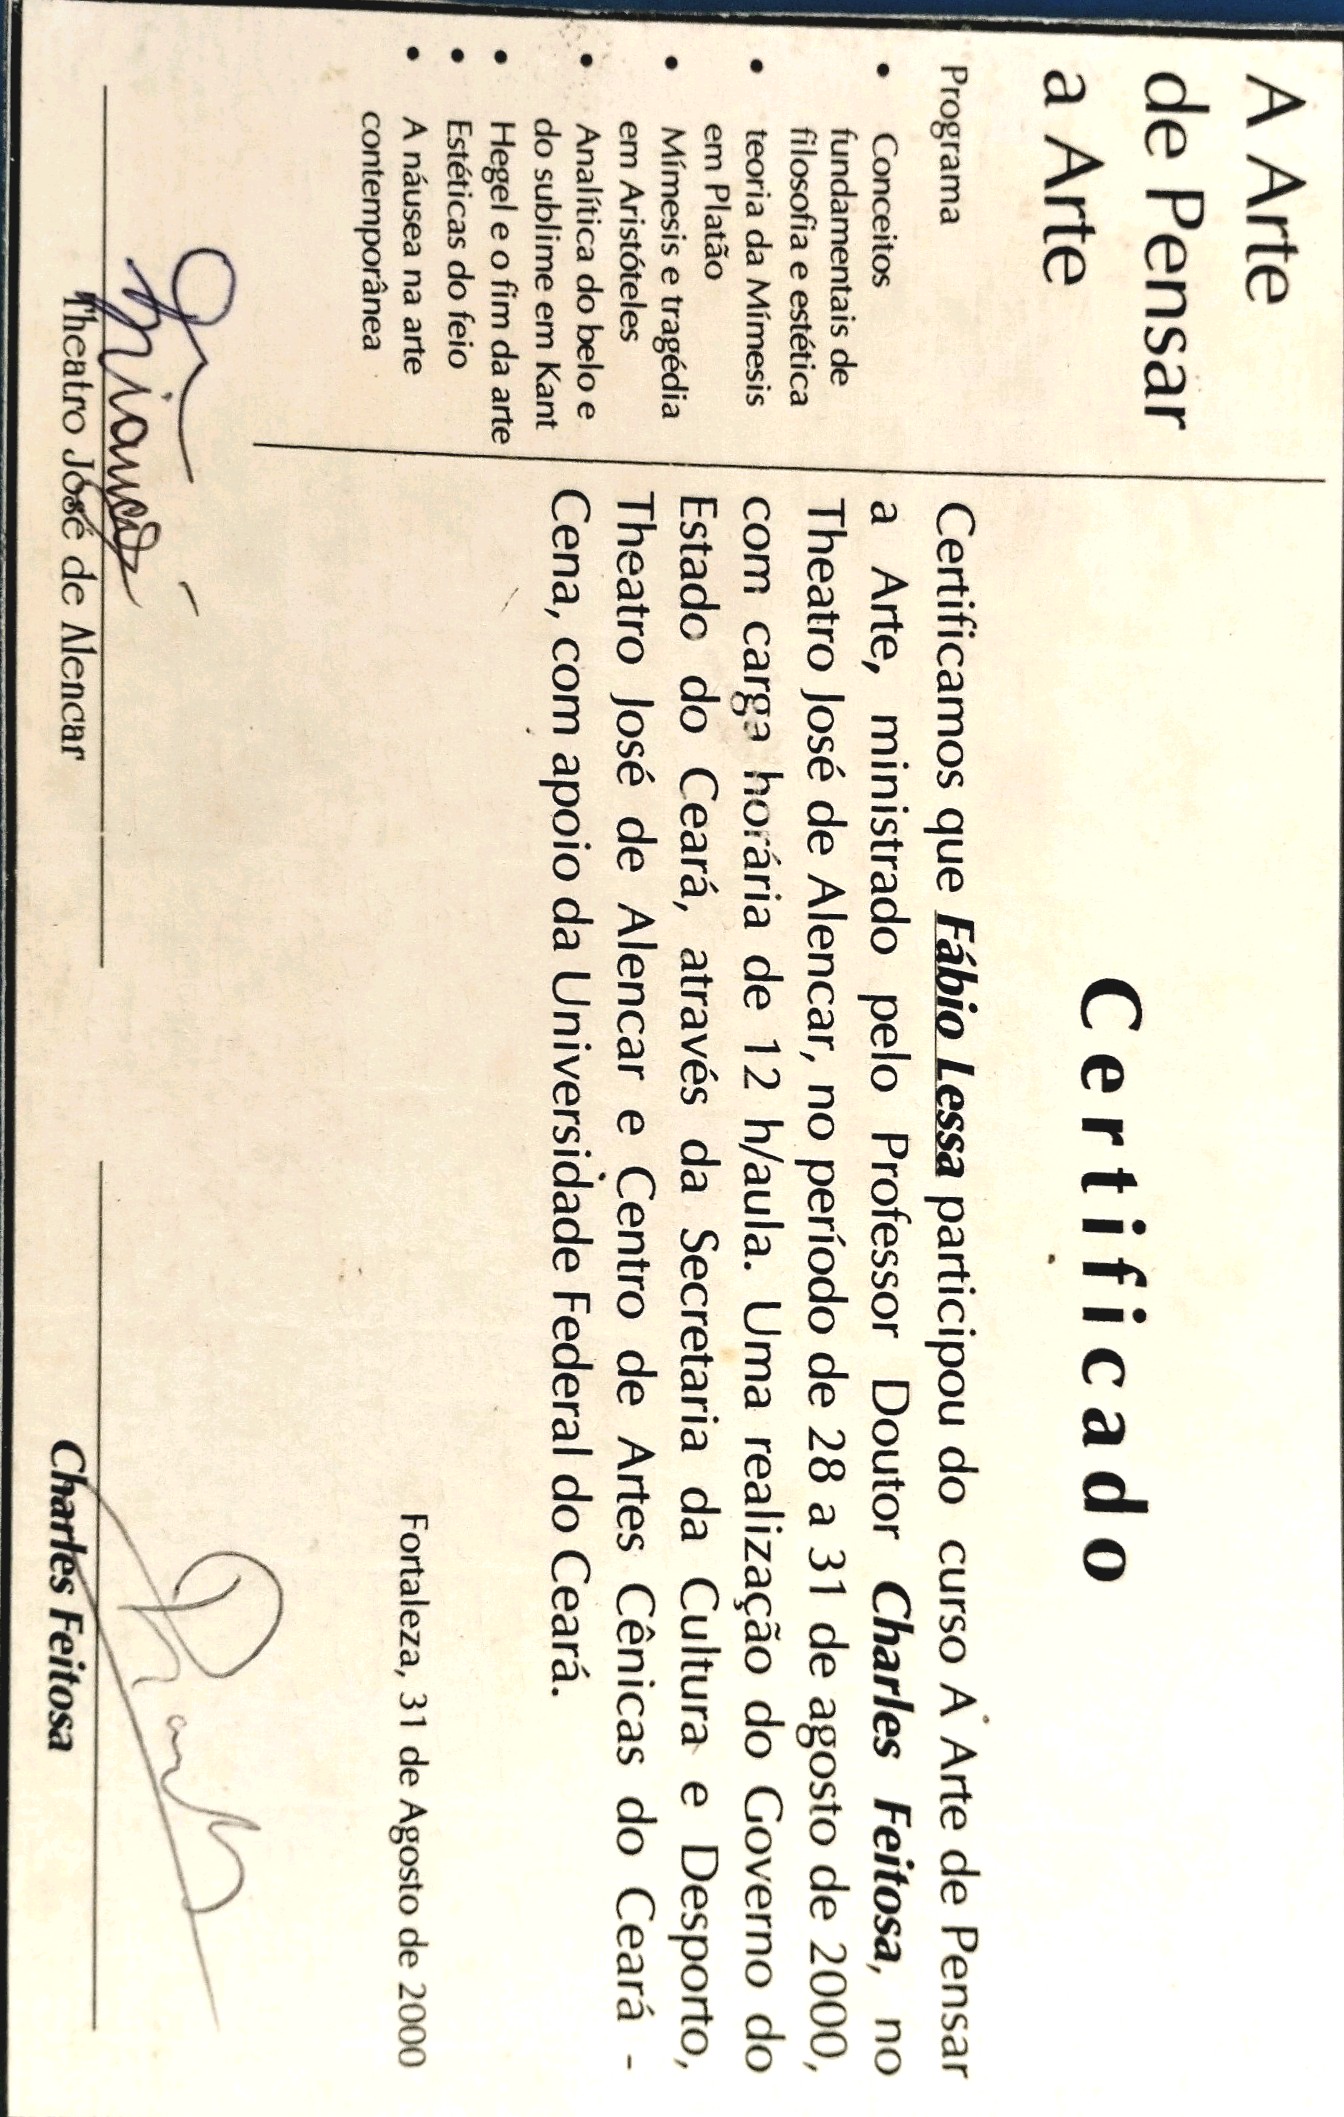 A Arte
de Pensar
a Arte
Programa
• Conceitos
fundamentais de
filosofia e estética
• teoria da Mímesis
em Platão
• Mímesis e tragédia
em Aristóteles
• Analítica do belo e
do sublime em Kant
• Hegel e o fim da arte
• Estéticas do feio
• A náusea na arte
contemporânea
Certificado
Certificamos que Fábio Lessa participou do curso A Arte de Pensar
a Arte, ministrado pelo Professor Doutor Charles Feitosa, no
Theatro José de Alencar, no período de 28 a 31 de agosto de 2000,
com carga horária de 12 h/aula. Uma realização do Governo do
Estado do Ceará, através da Secretaria da Cultura e Desporto,
Theatro José de Alencar e Centro de Artes Cênicas do Ceará -
Cena, com apoio da Universidade Federal do Ceará.
Fortaleza, 31 de Agosto de 2000
Theatro José de Alencar
Charles Feitosa